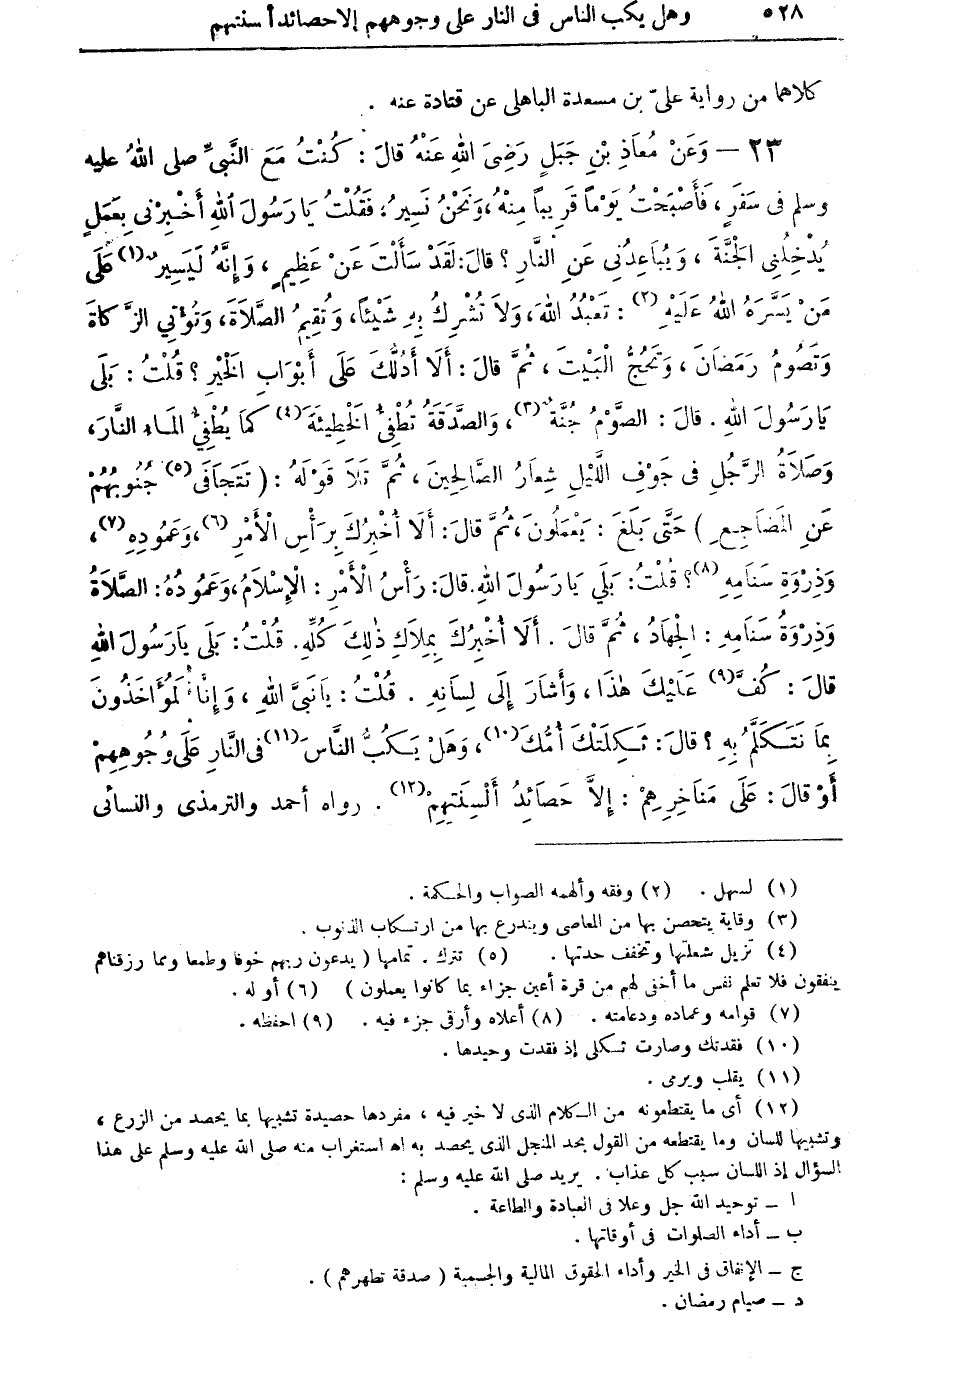 ٥٢٨ وهل يكب الناس فى النار على وجوههم إلا حصائد أسنتهم
كلاهما من رواية علىّ بن مسعدة الباهلى عن قتادة عنه .
٢٣ — وَعَنْ مُعَاذِ بْنِ جَبَلٍ رَضِىَ اللهُ عَنْهُ قالَ : كُنْتُ مَعَ النَّبىِّ صلى اللهُ عليه
وسلم فى سَفَرٍ ، فَأَصْبَحْتُ يَوْماً قَرِيباً مِنْهُ ، وَنَحْنُ نَسِيرُ ، فَقُلْتُ يَا رَسُولَ اللهِ أَخْبِرْنى بِعَمَلٍ
يُدْخِلُنِى الْجَنَّةَ ، وَيُبَاعِدُنِى عَنِ النَّارِ ؟ قالَ : لَقَدْ سَأَلْتَ عَنْ عَظِيمٍ ، وَإِنَّهُ لَيَسِيرٌ (١) عَلَى
مَنْ يَسَّرَهُ اللهُ عَلَيْهِ (٢) : تَعْبُدُ اللهَ ، وَلاَ تُشْرِكُ بِهِ شَيْئاً ، وَتُقِيمُ الصَّلاَةَ ، وَتُؤْتِي الزَّكاةَ
وَتَصُومُ رَمَضَانَ ، وَتَحُجُّ الْبَيْتَ ، ثُمَّ قالَ : أَلاَ أَدُلُّكَ عَلَى أَبْوَابِ الْخَيْرِ ؟ قُلْتُ : بَلَى
يَا رَسُولَ اللهِ . قالَ : الصَّوْمُ جُنَّةٌ (٣) ، وَالصَّدَقَةُ تُطْفِئُ الْخَطِيئَةَ (٤) كَمَا يُطْفِئُ الْمَاءُ النَّارَ ،
وَصَلاَةُ الرَّجُلِ فى جَوْفِ اللَّيْلِ شِعَارُ الصَّالِحِينَ ، ثُمَّ تَلاَ قَوْلَهُ : ( تَتَجَافَى (٥) جُنُوبُهُمْ
عَنِ الْمَضَاجِعِ ) حَتَّى بَلَغَ : يَعْمَلُونَ ، ثُمَّ قالَ : أَلاَ أُخْبِرُكَ بِرَأْسِ الْأَمْرِ (٦) ، وَعَمُودِهِ (٧) ،
وَذِرْوَةِ سَنَامِهِ (٨) ؟ قُلْتُ : بَلَي يَا رَسُولَ اللهِ . قالَ : رَأْسُ الْأَمْرِ : الْإِسْلاَمُ ، وَعَمُودُهُ : الصَّلاَةُ
وَذِرْوَةُ سَنَامِهِ : الْجِهَادُ ، ثُمَّ قالَ . أَلاَ أُخْبِرُكَ بِمِلاَكِ ذٰلِكَ كُلِّهِ . قُلْتُ : بَلَى يَا رَسُولَ اللهِ
قالَ : كُفَّ (٩) عَلَيْكَ هٰذَا ، وَأَشَارَ إِلَى لِسَانِهِ . قُلْتُ : يَا نَبِىَّ اللهِ ، وَإِنَّا لَمُؤَاخَذُونَ
بِمَا نَتَكَلَّمُ بِهِ ؟ قالَ : ثَكِلَتْكَ أُمُّكَ (١٠) ، وَهَلْ يَكُبُّ النَّاسَ (١١) فى النَّارِ عَلَى وُجُوهِهِمْ
أَوْ قالَ : عَلَى مَنَاخِرِهِمْ : إِلاَّ حَصَائِدُ أَلْسِنَتِهِمْ (١٢) . رواه أحمد والترمذى والنسائى
(١) لسهل . (٢) وفقه وألهمه الصواب والحكمة .
(٣) وقاية يتحصن بها من المعاصى ويندرع بها من ارتكاب الذنوب .
(٤) تزيل شعلتها وتخفف حدتها . (٥) تترك . تمامها ( يدعون ربهم خوفا وطمعا ومما رزقناهم
ينفقون فلا تعلم نفس ما أخفى لهم من قرة أعين جزاء بما كانوا يعملون ) (٦) أوله .
(٧) قوامه وعماده ودعامته . (٨) أعلاه وأرقى جزء فيه . (٩) احفظه .
(١٠) فقدتك وصارت ثكلى إذ فقدت وحيدها .
(١١) يقلب ويرمى .
(١٢) أى ما يقتطعونه من الكلام الذى لا خير فيه ، مفردها حصيدة تشبيها بما يحصد من الزرع ،
وتشبيها للسان وما يقتطعه من القول بحد المنجل الذى يحصد به اه استغراب منه صلى الله عليه وسلم على هذا
السؤال إذ اللسان سبب كل عذاب . يريد صلى الله عليه وسلم :
ا — توحيد الله جل وعلا فى العبادة والطاعة .
ب — أداء الصلوات فى أوقاتها .
ج — الإنفاق فى الخير وأداء الحقوق المالية والجسمية ( صدقة تطهرهم ) .
د — صيام رمضان .